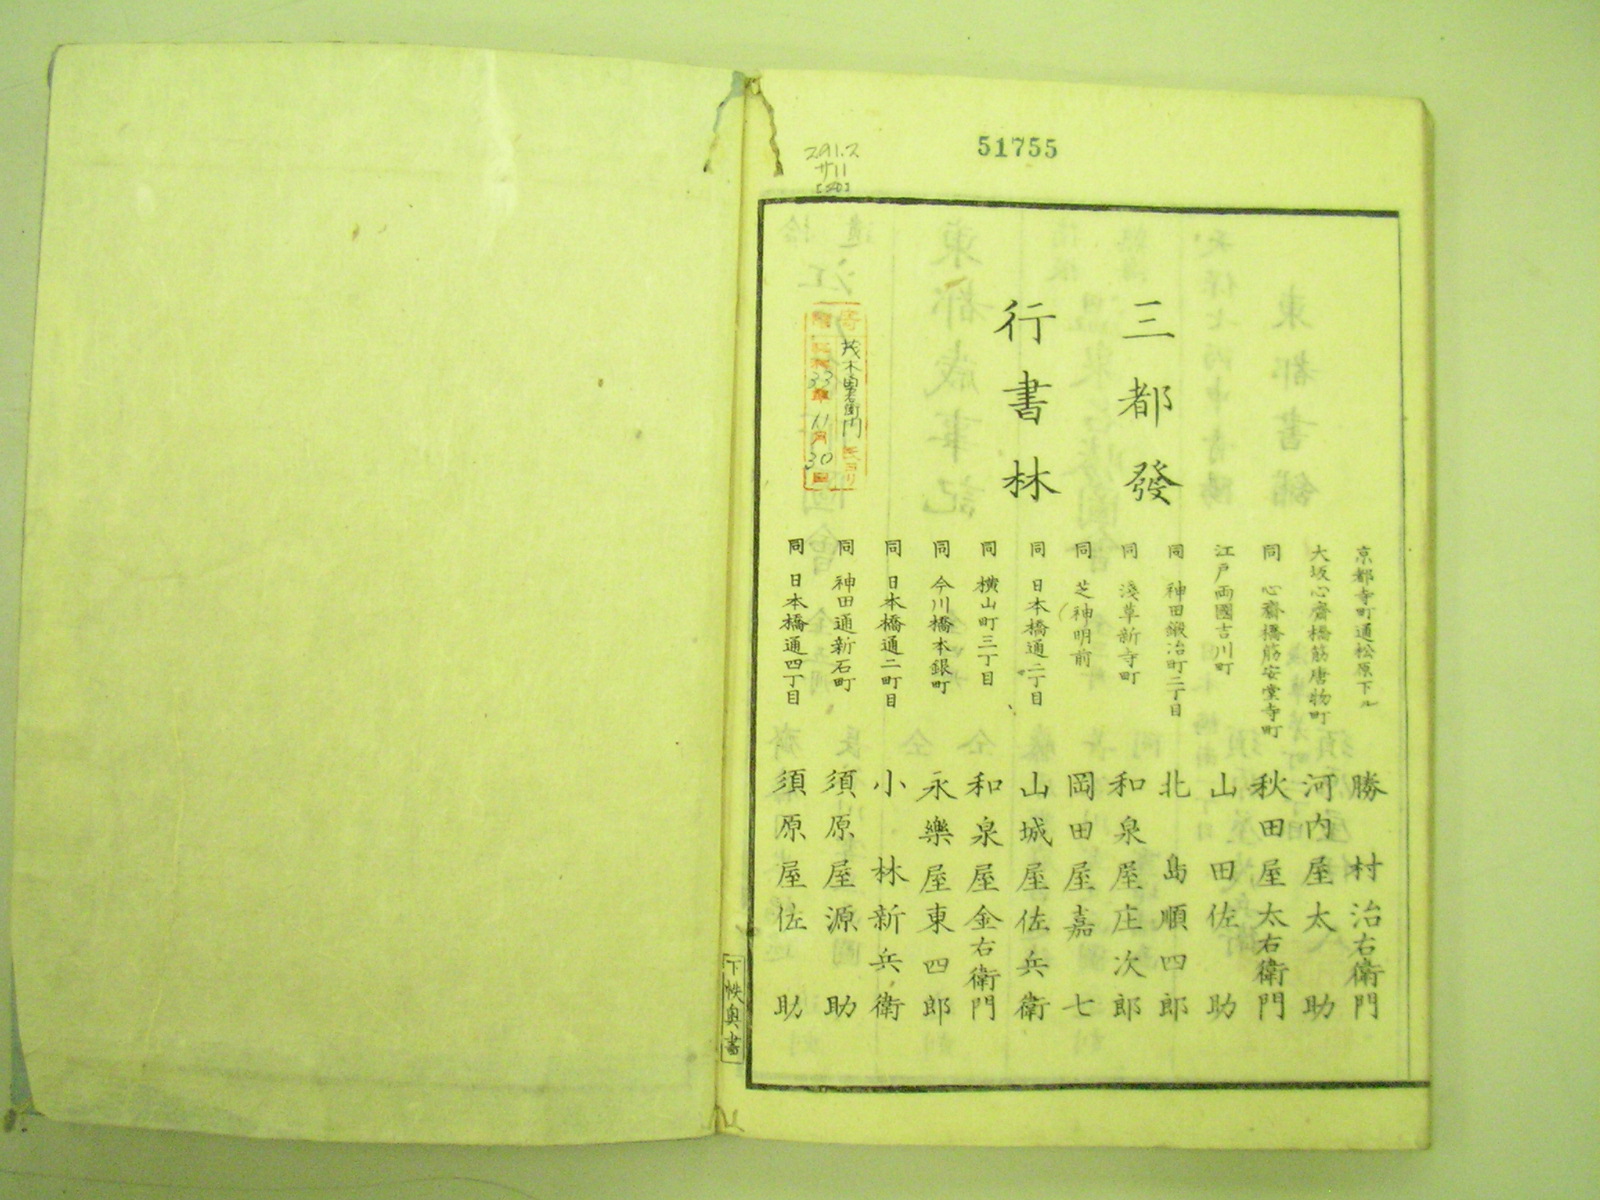 51755
291.2
サ11
三都發
行書林
京都寺町通松原下ル 勝村治右衛門
大坂心齋橋筋唐物町 河内屋太助
同 心齋橋筋安堂寺町 秋田屋太右衛門
江戸両國吉川町 山田佐助
同 神田鍛冶町二丁目 北島順四郎
同 淺草新寺町 和泉屋庄次郎
同 芝神明前 岡田屋嘉七
同 日本橋通二丁目 山城屋佐兵衛
同 横山町三丁目 和泉屋金右衛門
同 今川橋本銀町 永樂屋東四郎
同 日本橋通二町目 小林新兵衛
同 神田通新石町 須原屋源助
同 日本橋通四丁目 須原屋佐助
茂木 氏ヨリ
33年11月30日
下帙奥書